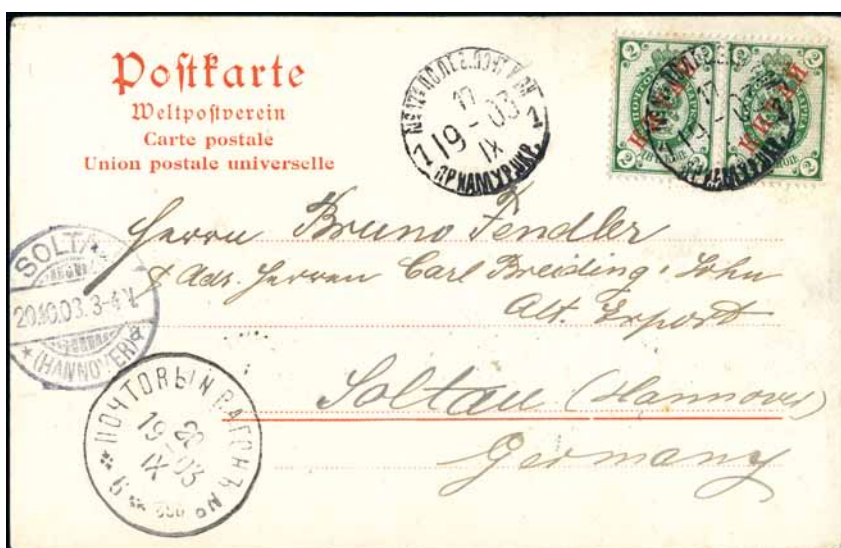 Postkarte
Weltpostverein
Carte postale
Union postale universelle
17
19-03
IX
ПРИАМУР.ПКР.
2 2
КИТАЙ КИТАЙ
2 2
17
19-03
Herrn Bruno Fendler
Adr. Herren Carl Breiding & Sohn
Abt. Export
Soltau (Hannover)
Germany
SOLTAU
20.10.03.3-4N.
* (HANNOVER) a
ПОЧТОВЫЙ ВАГОНЪ №
20
19-03
IX